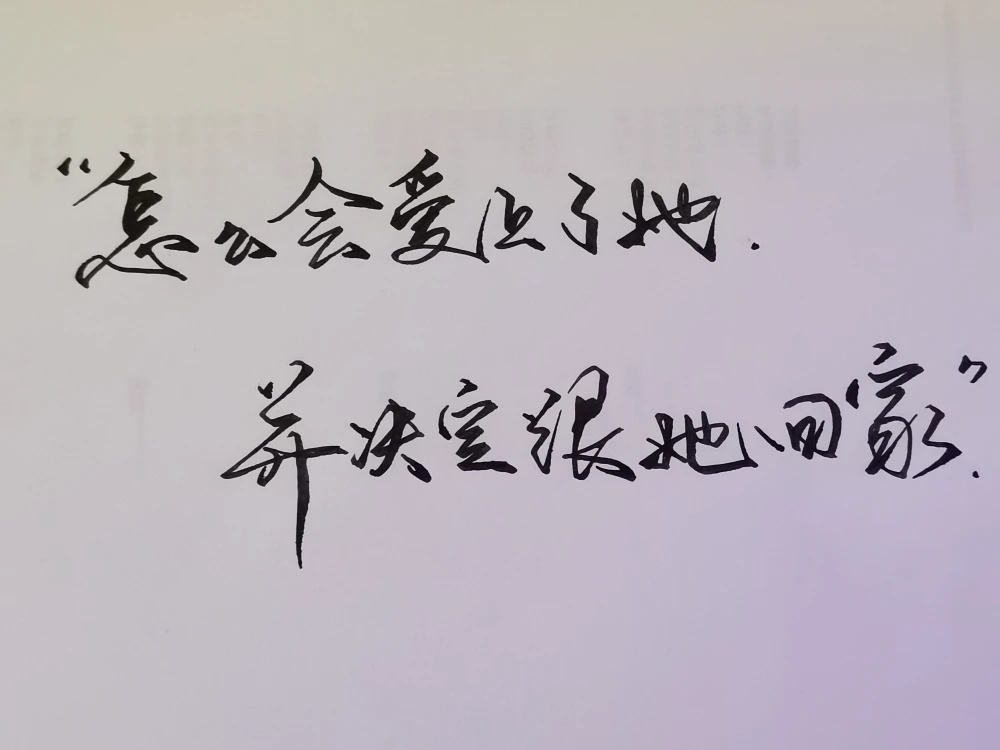 “怎么会爱上了她.
并决定跟她回家”.